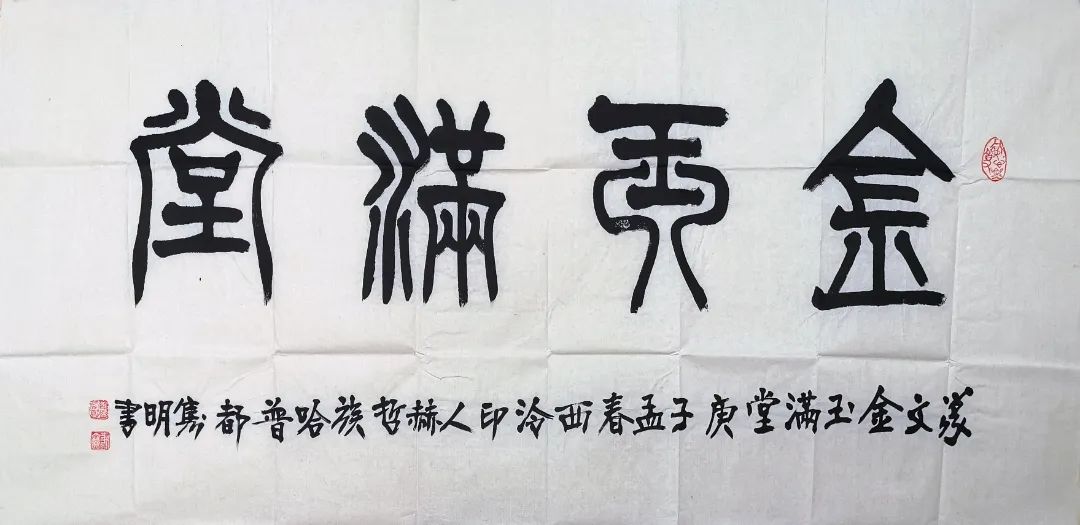 金玉滿堂
篆文金玉滿堂庚子孟春西泠印人赫哲族哈普都隽明書